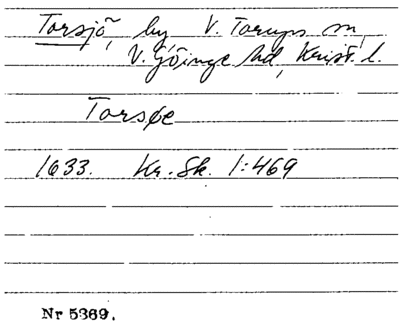 Torsjö, by V. Torups sn,
V. Göinge hd, Krist. l.
Torsøe
1633. Kr. Sk. 1:469
Nr 5369.